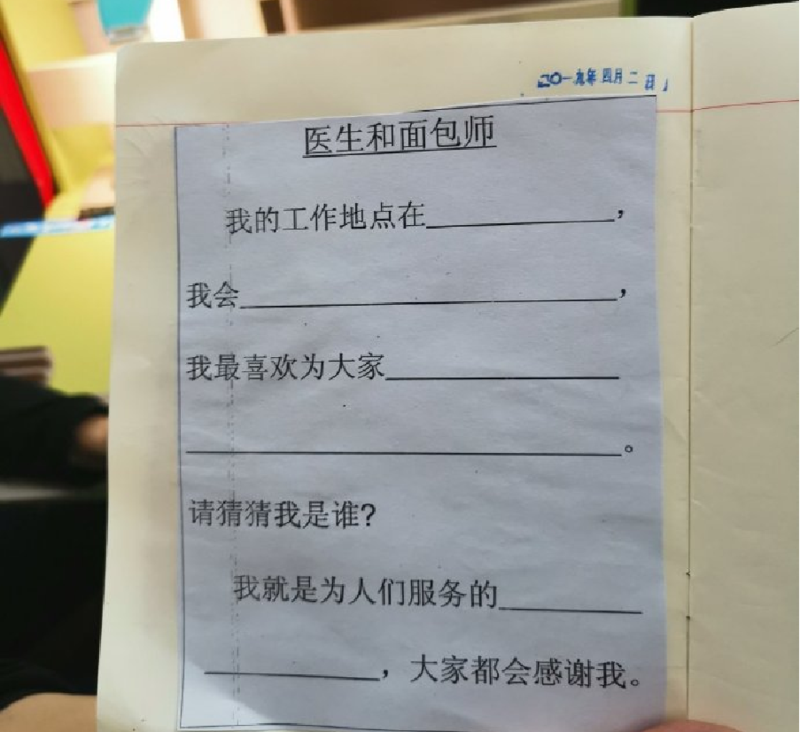 二〇一九年四月二日
医生和面包师
我的工作地点在____________，
我会________________________，
我最喜欢为大家_______________
____________________________。
请猜猜我是谁?
我就是为人们服务的_________
___________，大家都会感谢我。